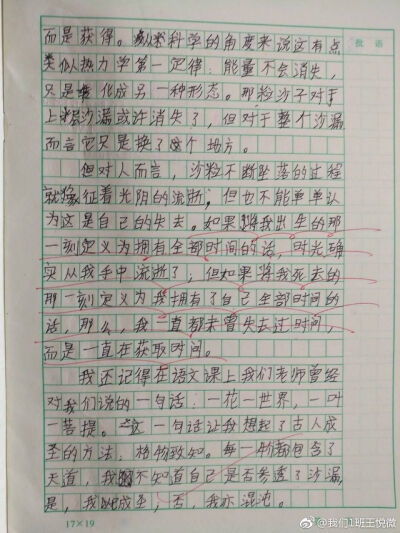 批语
而是获得。纵然科学的角度来说这有点
类似热力学第一定律：能量不会消失，
只是转化成另一种形态。那粒沙子对于
上层沙漏或许消失了，但对于整个沙漏
而言它只是换了个地方。
但对人而言，沙粒不断坠落的过程
就像征着光阴的流逝，但也不能单单认
为这是自己的失去。如果将我出生的那
一刻定义为拥有全部时间的话，时光确
实从我手中流逝了，但如果将我死去的
那一刻定义为我拥有了自己全部时间的
话，那么，我一直都未曾失去过时间，
而是一直在获取时间。
我还记得在语文课上我们老师曾经
对我们说的一句话：一花一世界，一叶
一菩提。这一句话让我想起了古人成
圣的方法，格物致知。每一物都包含了
天道，我不知道自己是否参透了沙漏
是，我成圣，否，我亦混沌。
17×19
@我们1班王悦微